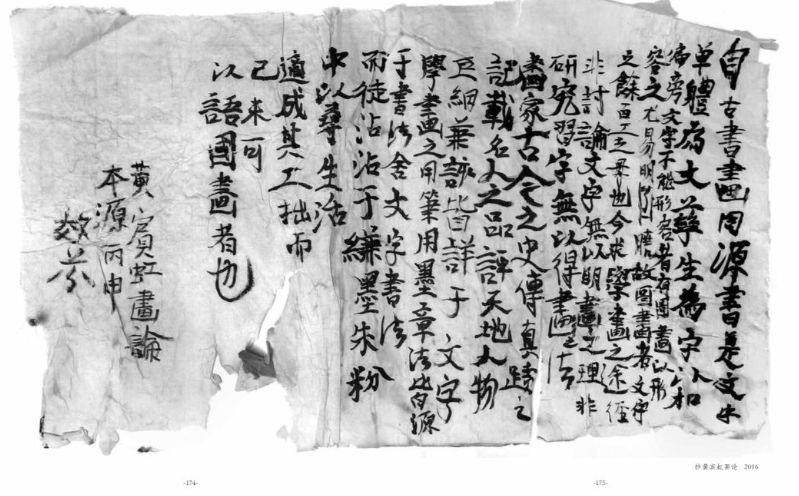 自古書畫同源書是文
單體為文孳生為字以和
偏旁文字不能形容者有圖畫以形
容之尤易明了瞭故圖畫者文字
之餘百工之母也今求學畫之途徑
非討論文字無以明畫之理非
研究習字無以得畫之法
畫家古今之史傳真蹟之
記載名人之品評天地人物
巨細兼詠皆詳于文字
學畫之用筆用墨章法皆源
于書法舍文字書法
而徒沾沾于縑墨朱粉
中以尋生活
適成其工拙而
已未可
以語國畫者也
黃賓虹畫論
本源丙申
抄黄宾虹画论 2016
-174-
-175-